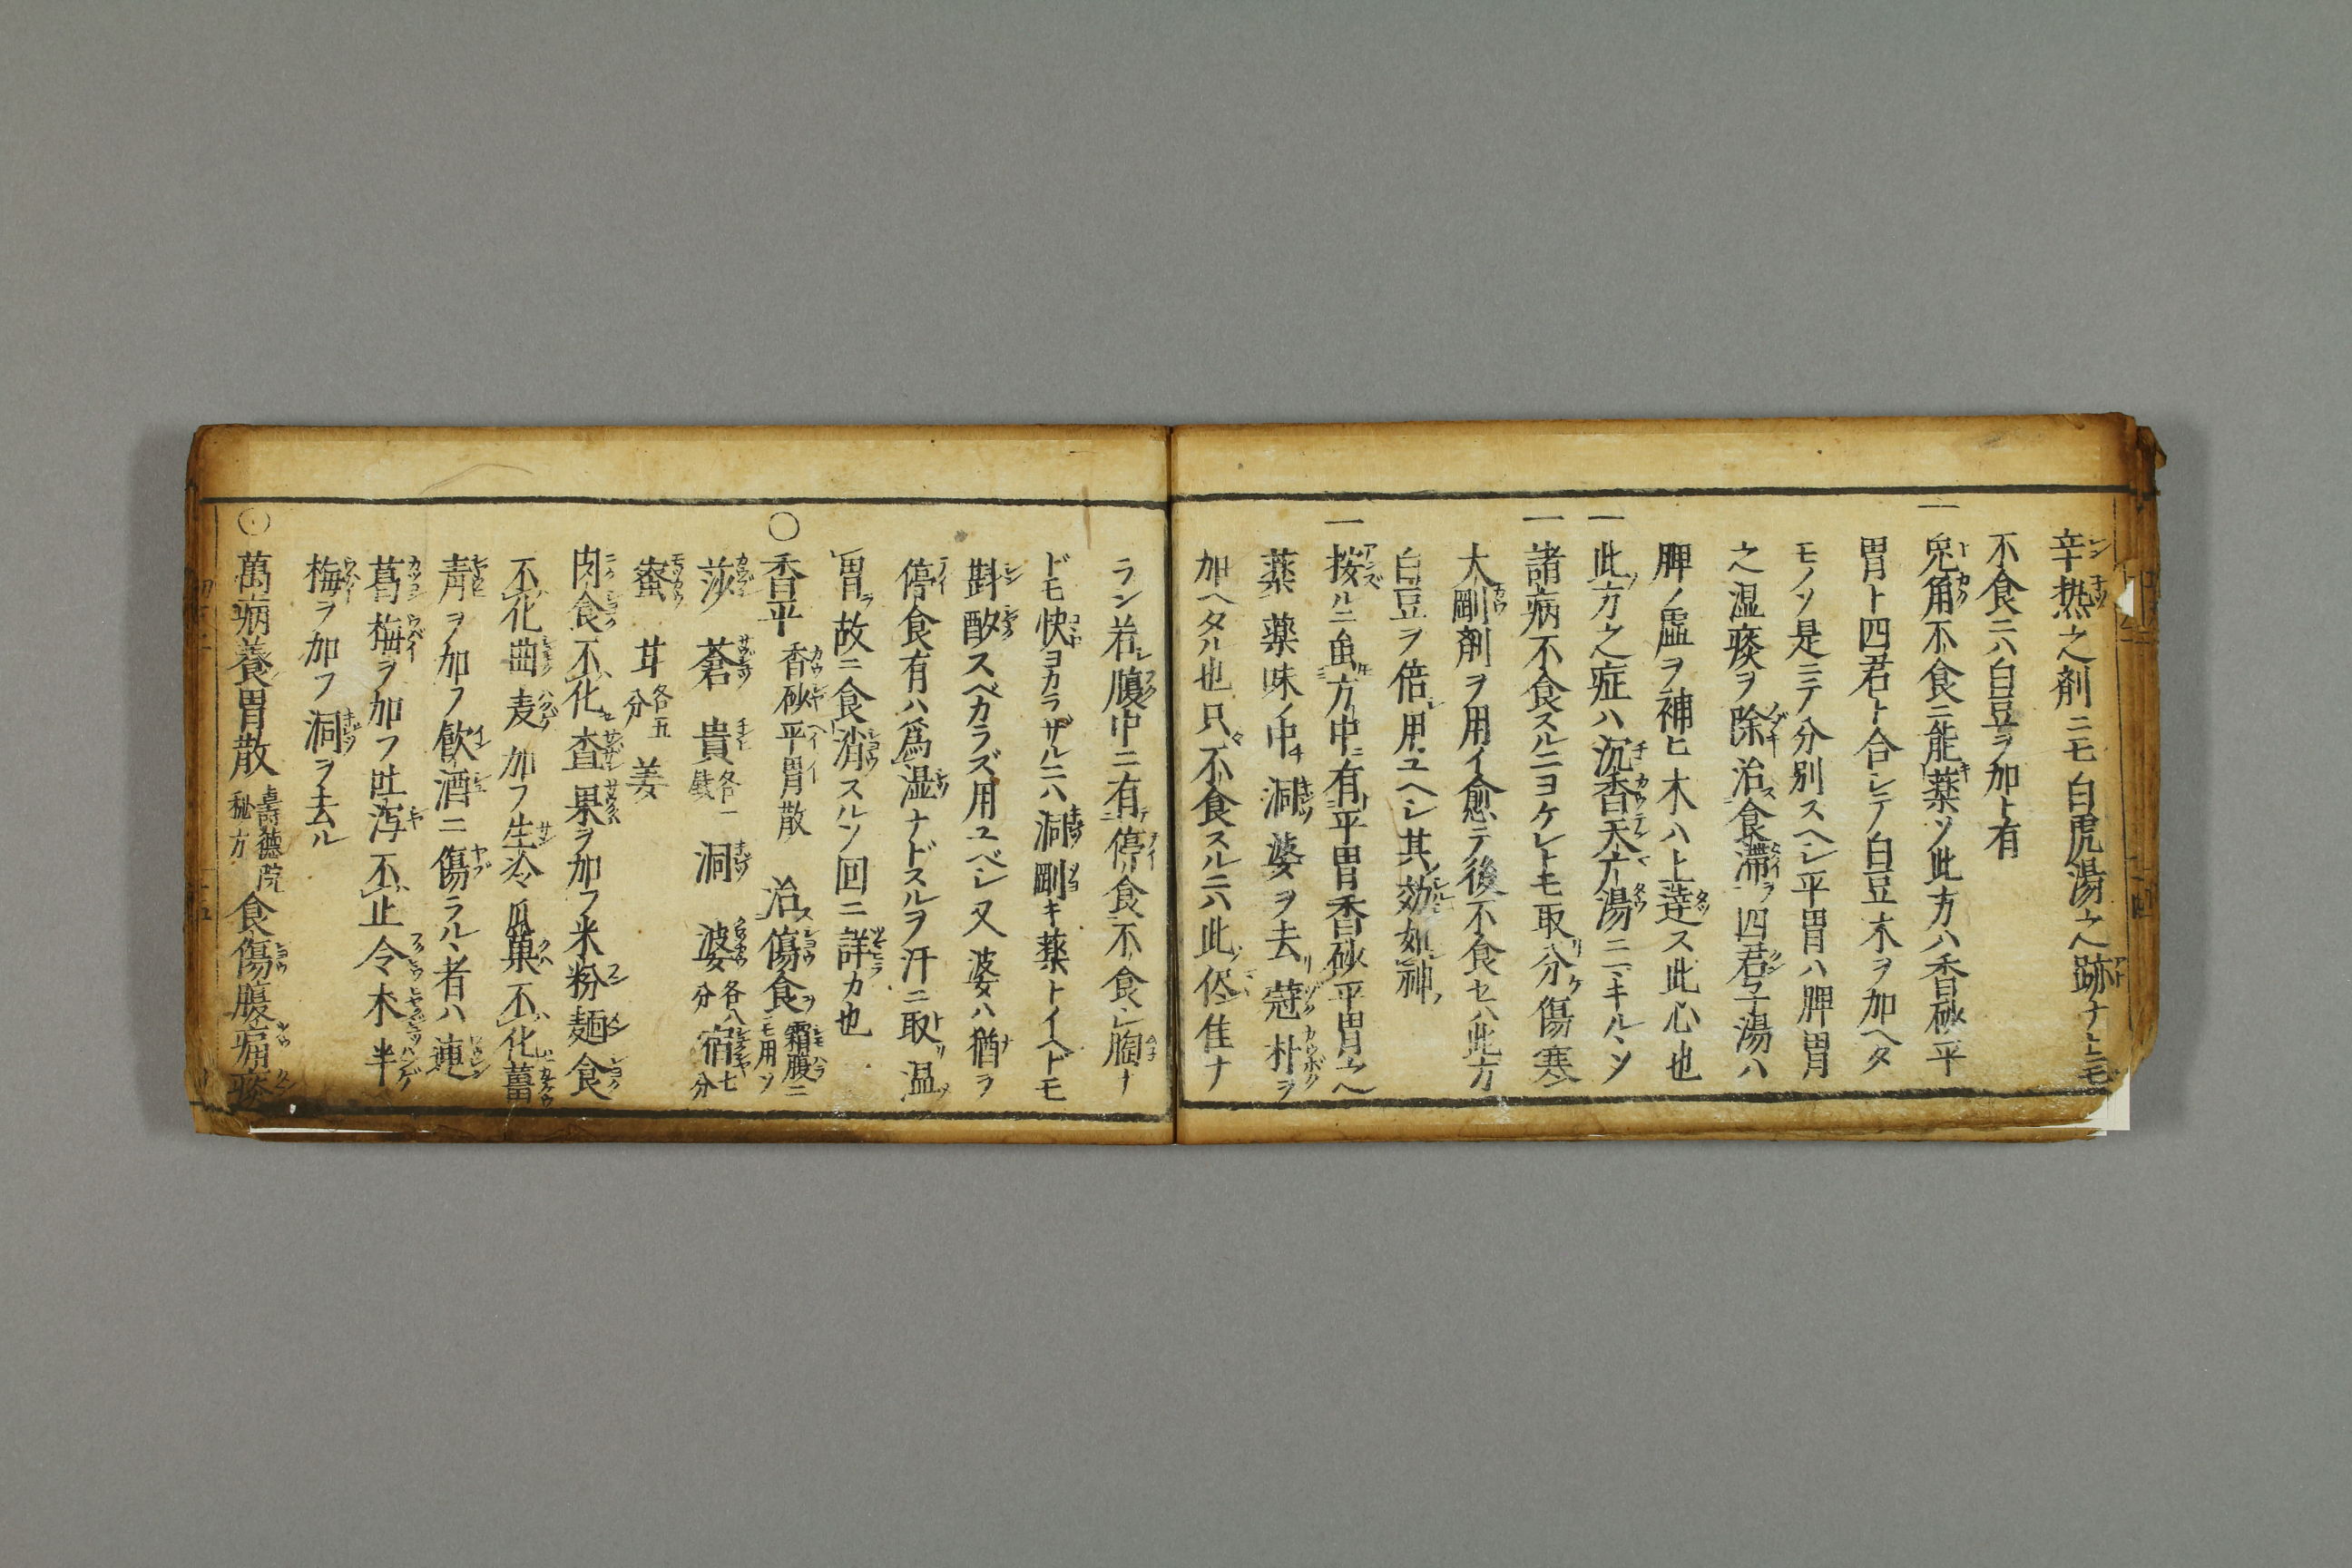 辛热之剤ニモ白虎湯之跡ナトモ
不食ニハ白豆ヲ加ト有
一兎角不食ニ能薬ソ此方ハ香砂平
胃ト四君ト合シテ白豆木ヲ加ヘタ
モノソ是ニテ分別スヘシ平胃ハ脾胃
之湿痰ヲ除治食滞ヲ四君子湯ハ
脾ノ虚ヲ補ヒ木ハ上達ス此心也
一此方之症ハ沉香天方湯ニニキルヽソ
一諸病不食スルニヨケレトモ取分傷寒
大剛剤ヲ用イ愈テ後不食セハ此方
白豆ヲ倍用ユヘシ其効如神
一按ルニ䖝方中有平胃香砂平胃之ヘ
薬薬味ノ中洞婆ヲ去蔻朴ヲ
加ヘタル也只不食スルニハ此侭佳ナ
ラン若腹中ニ有停食不食シ胸ナ
ドモ快ヨカラザルニハ洞剛キ薬トイヘドモ
斟酌スベカラズ用ユベシ又婆ハ猶ヲ
停食有ハ為湿ナドスルヲ汗ニ取温
胃故ニ食消スルソ回ニ詳カ也
○香平 香砂平胃散 治傷食 霜腹ニモ用ソ
莎 蒼 貴各一戔 洞 婆各八分 宿七分
蜜 甘各五分 姜
肉食不化査果ヲ加フ米粉麺食
不化曲麦加フ生冷瓜菓不化薑
青ヲ加フ飲酒ニ傷ラルヽ者ハ連
葛梅ヲ加フ吐瀉不止令木半
梅ヲ加フ洞ヲ去ル
○萬病養胃散 壽德院秘方 食傷腹痛痰